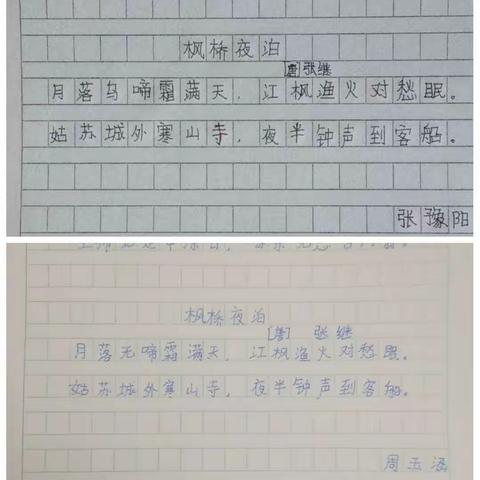 枫桥夜泊
[唐]张继
月落乌啼霜满天，江枫渔火对愁眠。
姑苏城外寒山寺，夜半钟声到客船。
张豫阳
枫桥夜泊
[唐] 张继
月落无啼霜满天，江枫渔火对愁眠。
姑苏城外寒山寺，夜半钟声到客船。
周玉涵